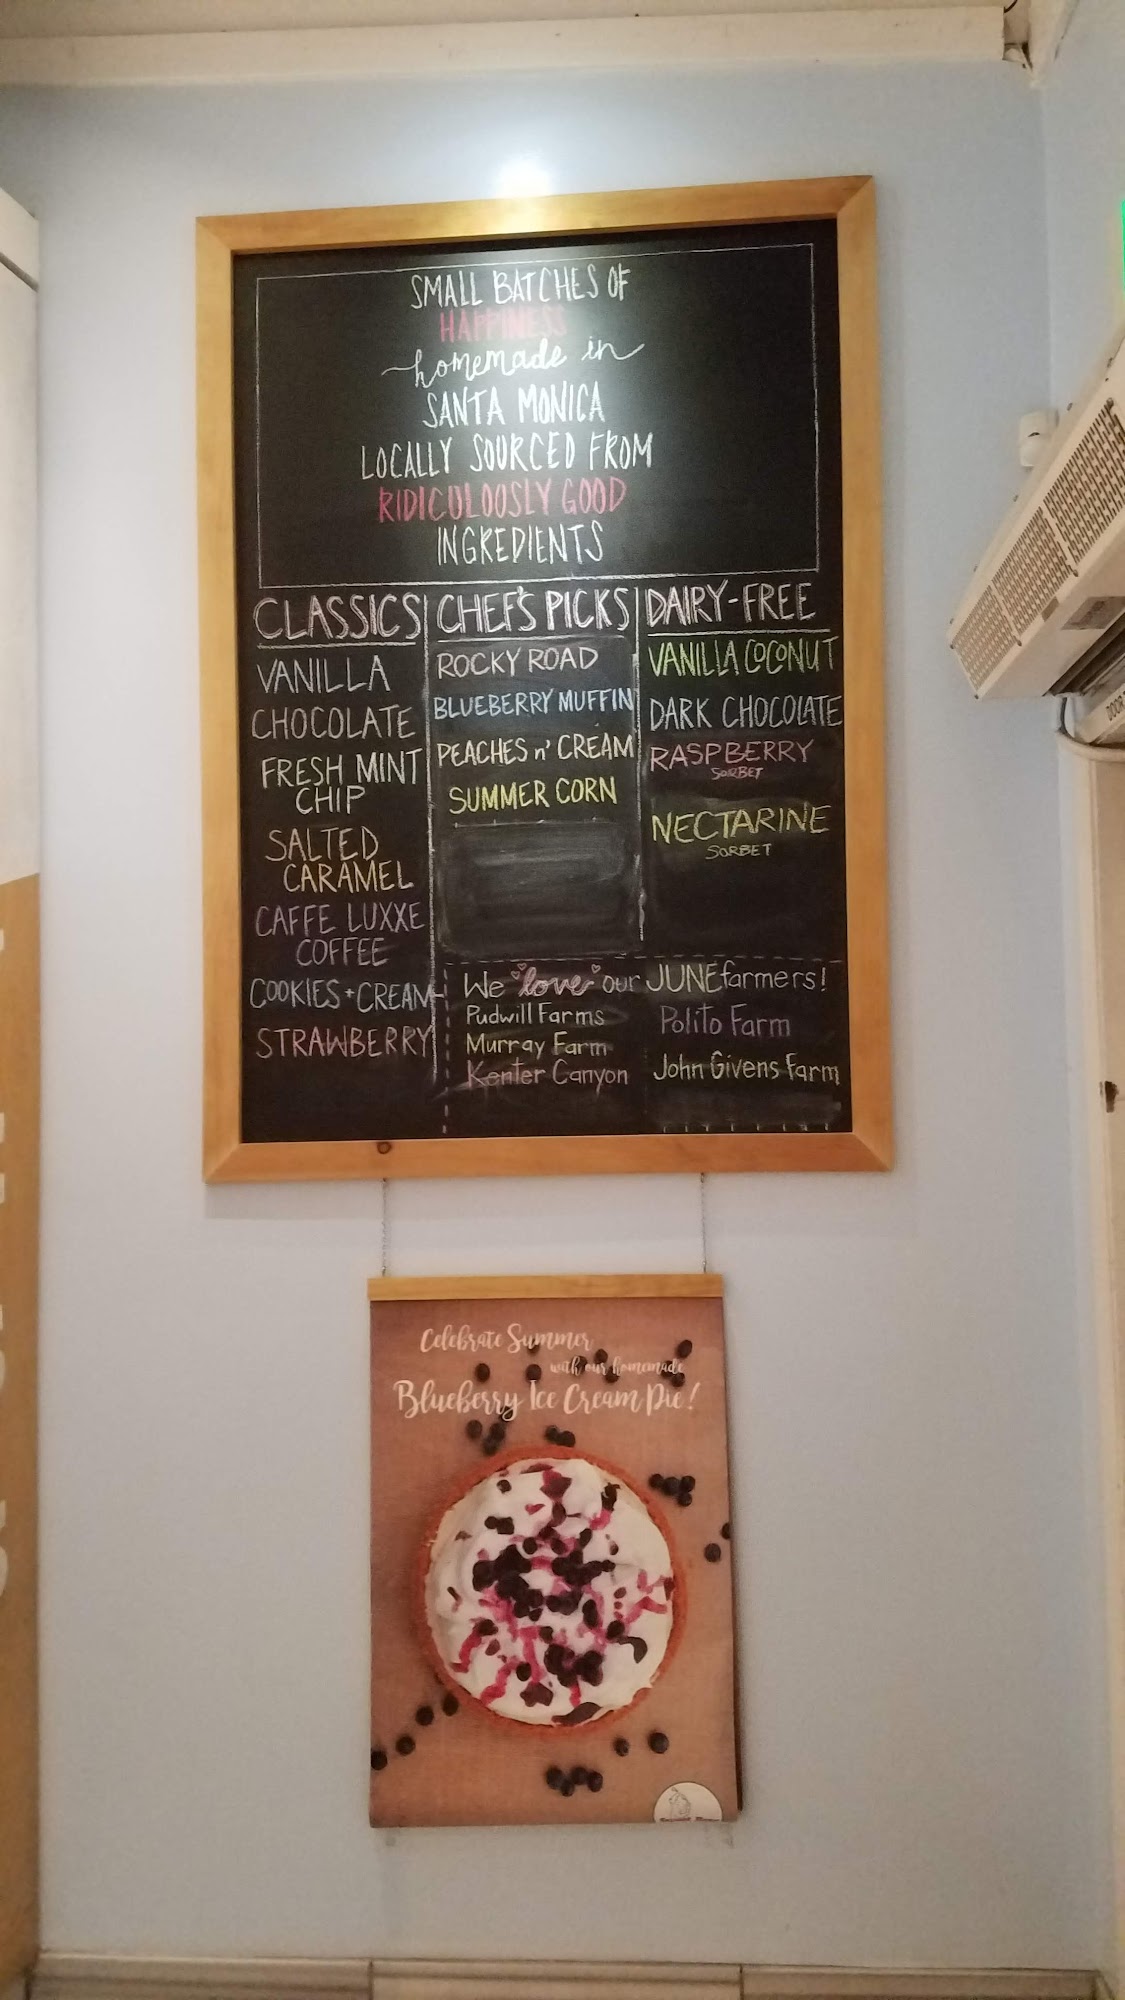 SMALL BATCHES OF
HAPPINESS
homemade in
SANTA MONICA
LOCALLY SOURCED FROM
RIDICULOUSLY GOOD
INGREDIENTS
CLASSICS
VANILLA
CHOCOLATE
FRESH MINT
CHIP
SALTED
CARAMEL
CAFFE LUXXE
COFFEE
COOKIES + CREAM
STRAWBERRY
CHEF'S PICKS
ROCKY ROAD
BLUEBERRY MUFFIN
PEACHES n' CREAM
SUMMER CORN
DAIRY-FREE
VANILLA COCONUT
DARK CHOCOLATE
RASPBERRY
SORBET
NECTARINE
SORBET
We love our JUNE farmers!
Pudwill Farms
Murray Farm
Kenter Canyon
Polito Farm
John Givens Farm
Celebrate Summer
with our homemade
Blueberry Ice Cream Pie!
DOOR